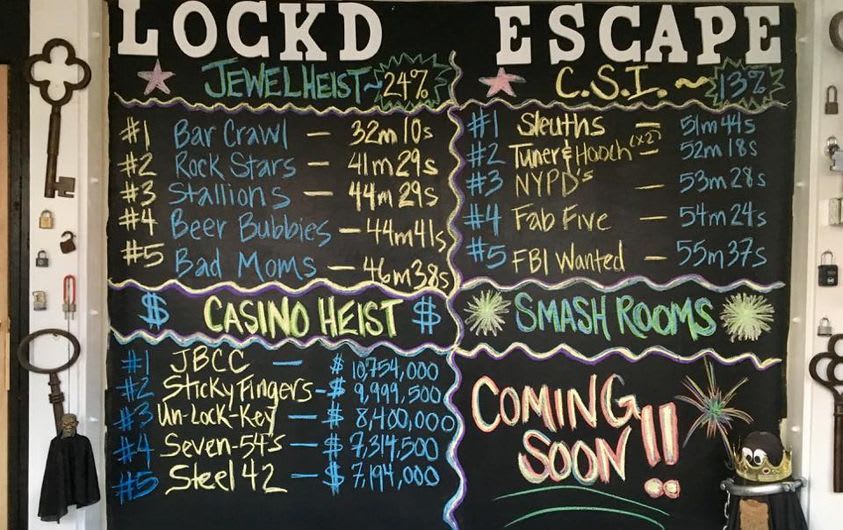 LOCKD ESCAPE
JEWEL HEIST ~ 24%
#1 Bar Crawl — 32m 10s
#2 Rock Stars — 41m 29s
#3 Stallions — 44m 29s
#4 Beer Bubbies — 44m 41s
#5 Bad Moms — 46m 38s
C.S.I. ~ 13%
#1 Sleuths — 51m 44s
#2 Tuner & Hooch (x2) — 52m 18s
#3 NYPD's — 53m 28s
#4 Fab Five — 54m 24s
#5 FBI Wanted — 55m 37s
$ CASINO HEIST $
#1 JBCC — $ 10,754,000
#2 Sticky Fingers - $ 9,999,500
#3 Un-Lock-Key - $ 8,400,000
#4 Seven-54's — $ 7,314,500
#5 Steel 42 — $ 7,194,000
SMASH ROOMS
COMING
SOON!!